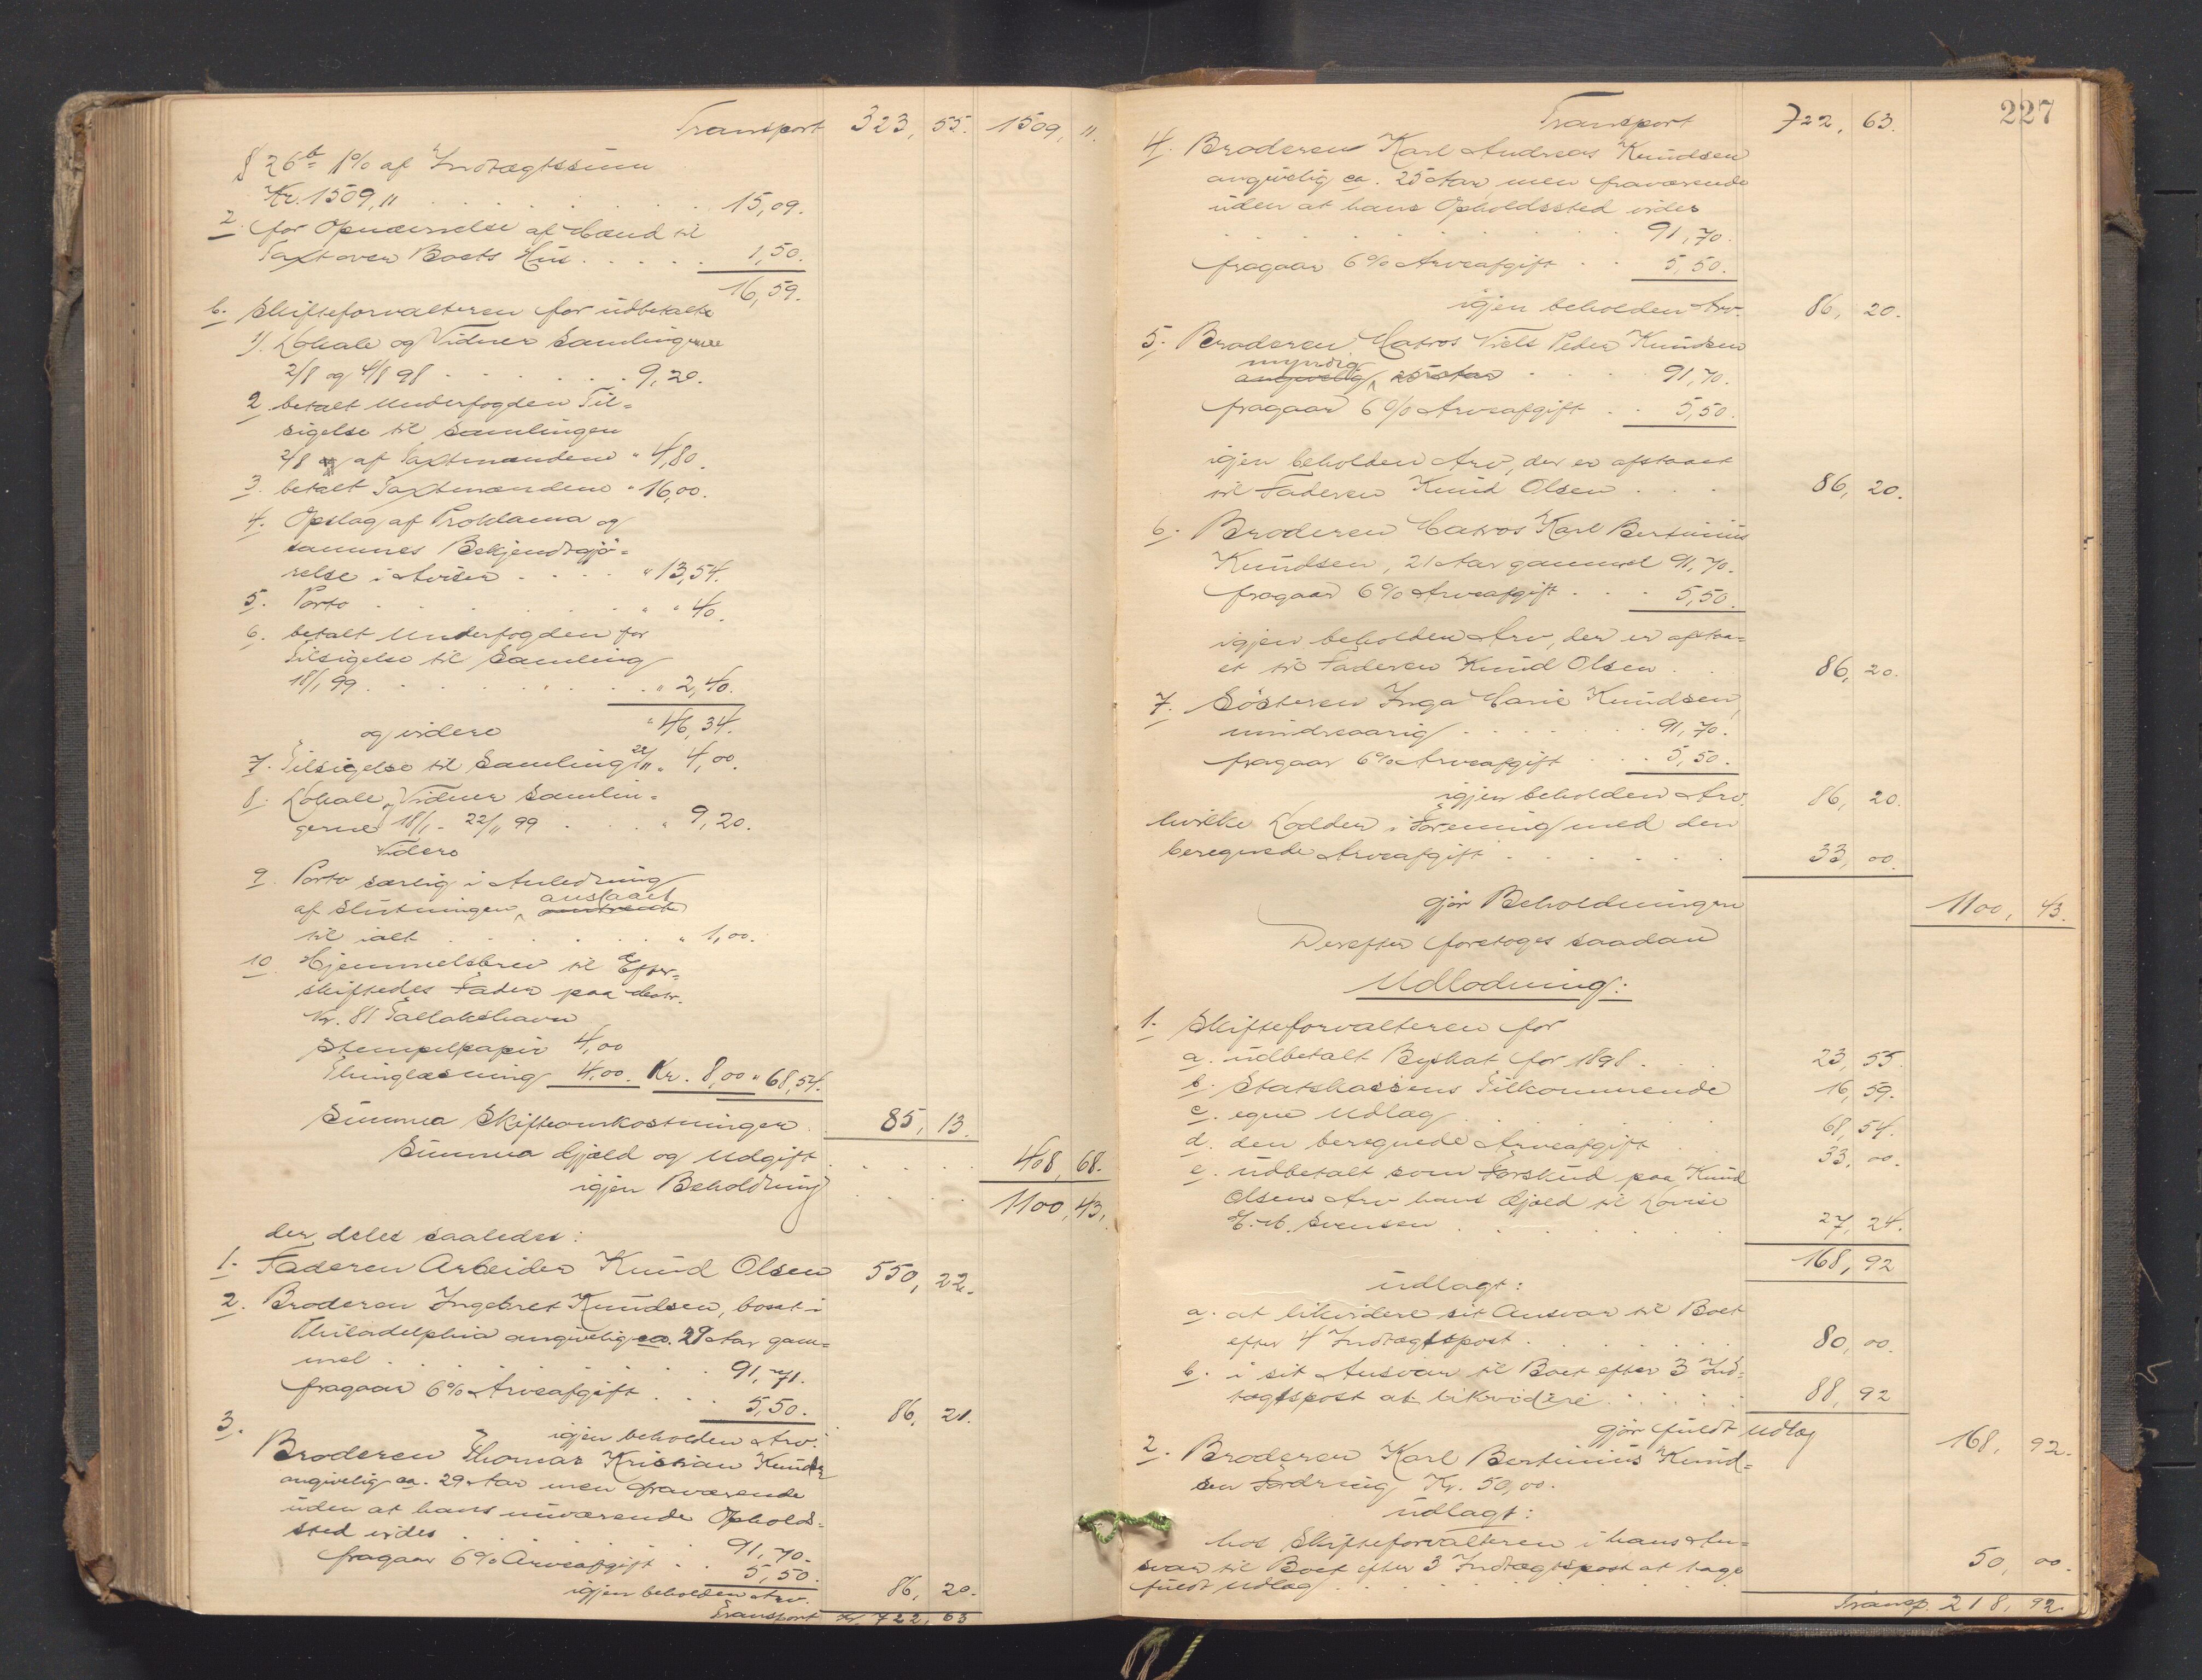 Transport 323, 55. 1509, 11.
§ 26 b 1% af Indtægtssum
Kr. 1509, 11 . . . . . . 15,09.
2. for Opnævnelse af Mænd til
Taxt over Boets Hus . . . . . 1,50.
16,59.
b. Skifteforvalteren for udbetalte
1). Lokale og Vidner Samlingerne
2/8 og 4/8 98 . . . . . . 9,20.
2 betalt Underfogden Til=
sigelse til Samlingen
2/8 af Taxtmændene " 4,80.
3. betalt Taxtmændene " 16,00.
4. Opslag af Proklama og
sammes Bekjendtgjø=
relse i Aviser . . . . " 13,54.
5. Porto . . . . . . " " 40.
6. betalt Underfogden for
Tilsigelse til Samling
18/1 99 . . . . . . " 2,40.
og videre " 46,34.
7. Tilsigelse til Samling 22/11 " 4,00.
8. Lokale, Vidner Samlin=
gerne 18/1 - 22/11 99 . . . " 9,20.
Videre
9. Porto særlig i Anledning
af Slutningen anslaaet
til ialt . . . . . . " 1,00.
10 Hjemmelsbrev til d Efter=
skiftedes Fader paa Matr.
Nr. 81 Tallakshavn
Stempelpapir 4,00
Thinglæsning 4,00. Kr. 8,00 " 68,54.
Summa Skifteomkostninger 85, 13.
Summa Gjæld og Udgift . . . . 408, 68.
igjen Beholdning . . . . 1100, 43.
der deles saaledes:
1. Faderen Arbeider Knud Olsen 550, 22.
2. Broderen Ingebret Knudsen, bosat i
Philadelphia angivelig ca. 29 Aar gam=
mel . . . . . . . 91,71.
fragaar 6% Arveafgift . . 5,50.
igjen beholden Arv. 86, 21.
3. Broderen Thomas Kristian Knuds
angivelig ca. 29 Aar men fraværende
uden at hans nuværende Opholds=
sted vides . . . . . 91,70.
fragaar 6% Arveafgift . . 5,50.
igjen beholden Arv. 86, 20.
Transport Kr. 722, 63
227
Transport 722, 63.
4. Broderen Karl Andreas Knudsen
angivelig ca. 25 Aar, men fraværende
uden at hans Opholdssted vides
. . . . . . . . . 91,70.
fragaar 6% Arveafgift . . 5,50.
igjen beholden Arv. 86, 20.
5. Broderen Matros Niels Peder Knudsen
myndig
angivelig 25 Aar . . . . 91,70.
fragaar 6% Arveafgift . . 5,50.
igjen beholden Arv, der er afstaaet
til Faderen Knud Olsen . . . 86, 20.
6. Broderen Matros Karl Bertinius
Knudsen, 21 Aar gammel 91,70.
fragaar 6% Arveafgift . . . 5,50.
igjen beholden Arv, der er afstaa=
et til Faderen Knud Olsen . . 86, 20.
7. Søsteren Inga Marie Knudsen,
mindreaarig . . . . . 91,70.
fragaar 6% Arveafgift . . . 5,50.
igjen beholden Arv. 86, 20.
hvilke Lodder i Forening med den
beregnede Arveafgift . . . . . . 33, 00.
gjør Beholdningen 1100, 43.
Derefter foretoges saadan
Udlodning:
1. Skifteforvalteren for
a. udbetalt Byskat for 1898 . . . 23, 55.
b. Statskassens Tilkommende 16, 59.
c. egne Udlæg . . . . . . 68, 54.
d. den beregnede Arveafgift . . 33, 00.
e. udbetalt som Forskud paa Knud
Olsens Arv hans Gjæld til Lovise
E. M. Svensen . . . . . 27, 24.
168, 92
udlagt:
a. at likvidere sit Ansvar til Boet
efter 4 Indtægtspost . . . . . 80, 00.
b. i sit Ansvar til Boet efter 3 Ind=
tægtspost at likvidere . . . . 88, 92
gjør fuldt Udlæg 168, 92.
2. Broderen Karl Bertinius Knud=
sen Fordring Kr. 50,00.
udlagt:
hos Skifteforvalteren i hans An=
svar til Boet efter 3 Indtægtspost at tage
fuldt Udlæg . . . . . . . . . . 50, 00.
Transp. 218, 92.